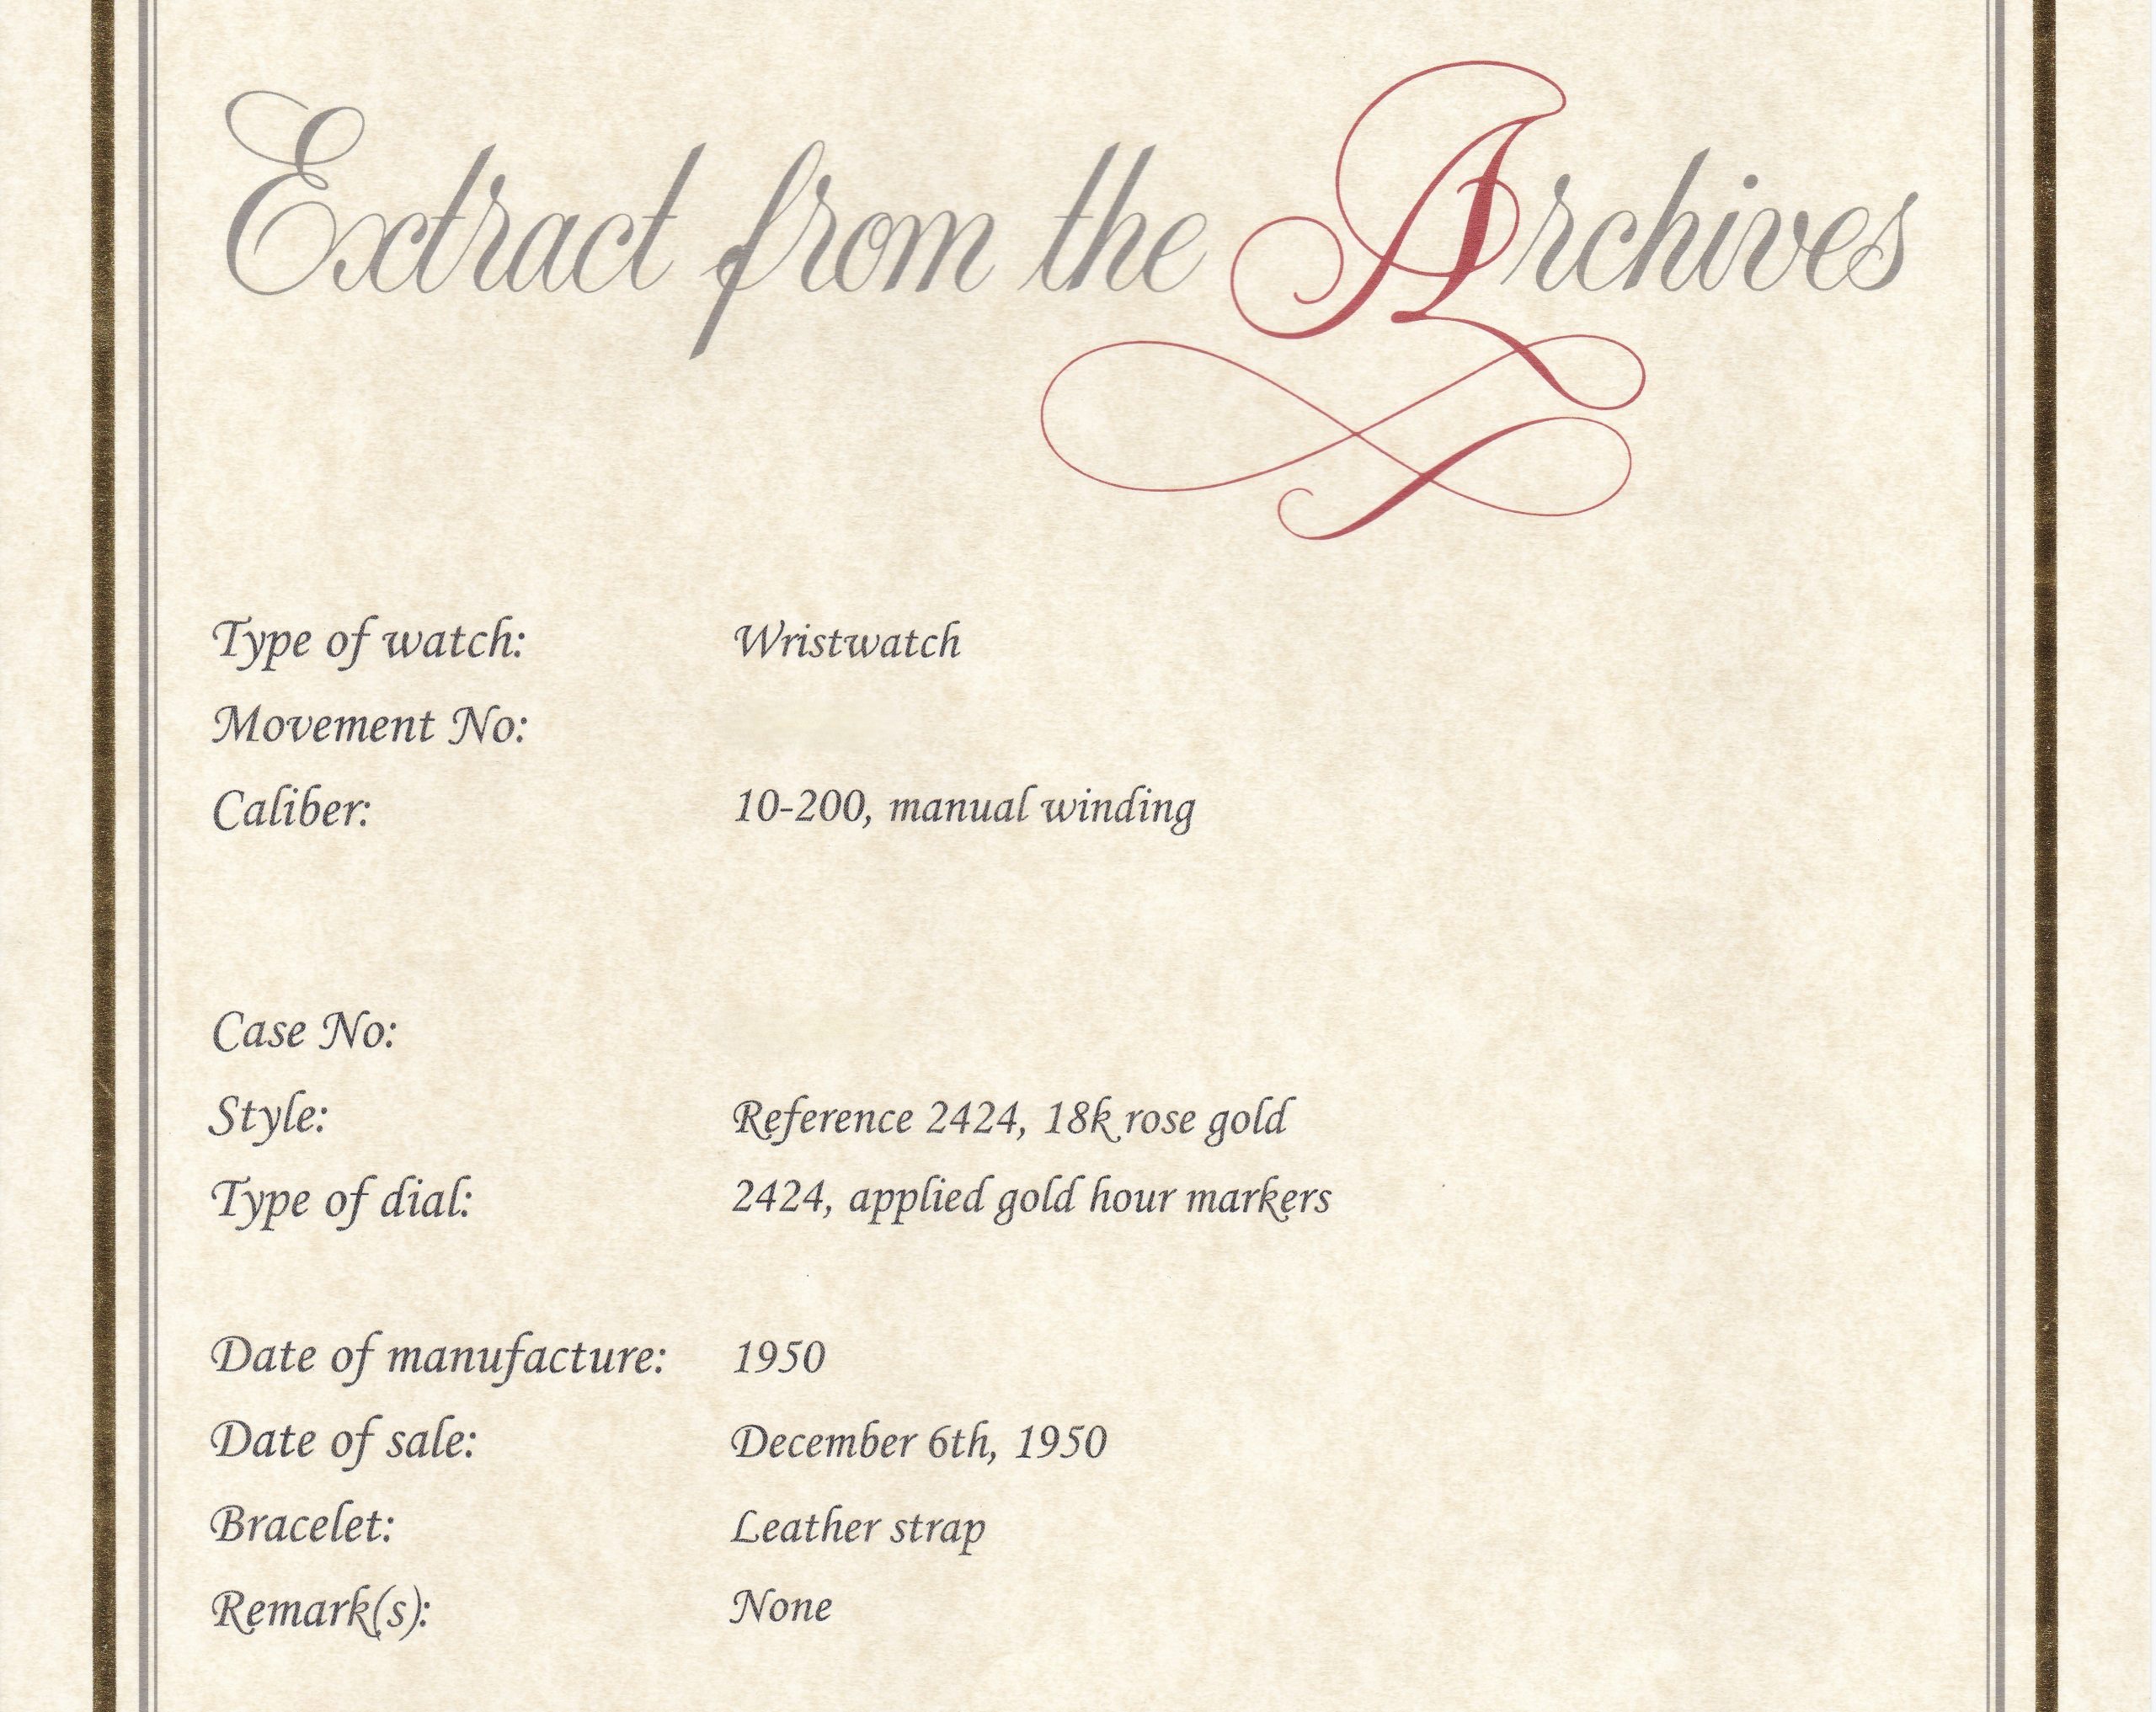 Extract from the Archives
Type of watch: Wristwatch
Movement No:
Caliber: 10-200, manual winding
Case No:
Style: Reference 2424, 18k rose gold
Type of dial: 2424, applied gold hour markers
Date of manufacture: 1950
Date of sale: December 6th, 1950
Bracelet: Leather strap
Remark(s): None